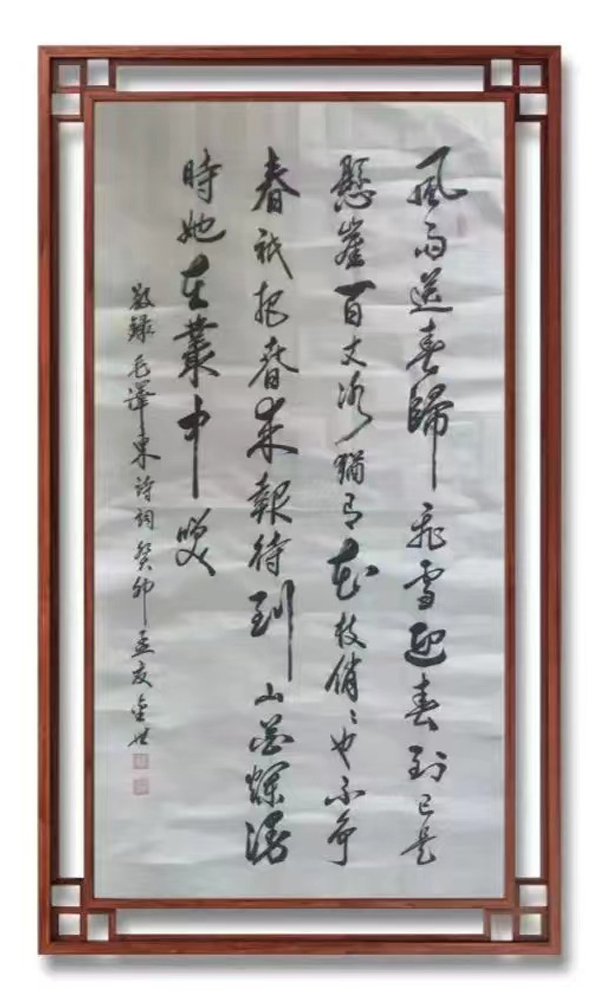 風雨送春歸飛雪迎春到已是
懸崖百丈冰猶有花枝俏〻也不争
春祇把春來報待到山花爛漫
時她在叢中笑
敬錄毛澤東詩詞癸卯孟夏